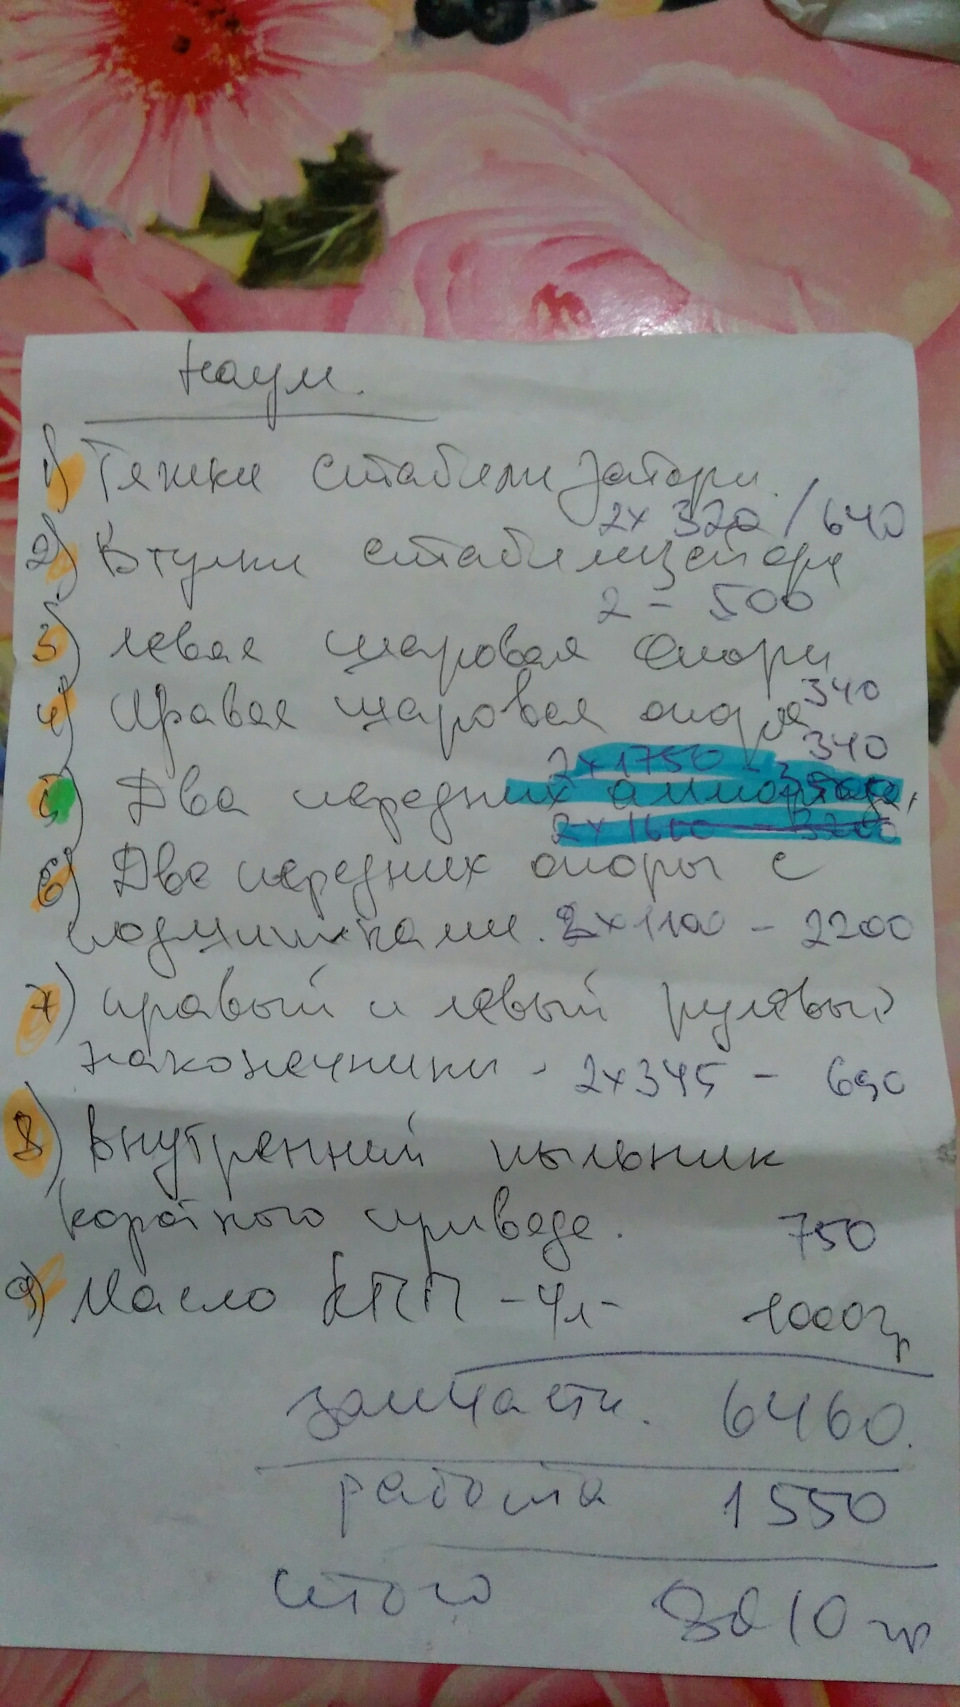 Наум.
1) Тяжки стабилизатора
2х320 / 640
2) Втулки стабилизатора
2 - 500
3) левая шаровая опора
340
4) Правая шаровая опора
340
2х1750 -
5) Два передних аммортиза,
2х1600 - 3200
6) Две передних опоры с
подшипниками. 2х1100 - 2200
7) правый и левый рулевый
наконечники - 2х345 - 690
8) внутренний пыльник
короткого привода.
750
9) Масло КПП - 4л - 1000гр
запчасти. 6460.
работа 1550
итого 8010 гр